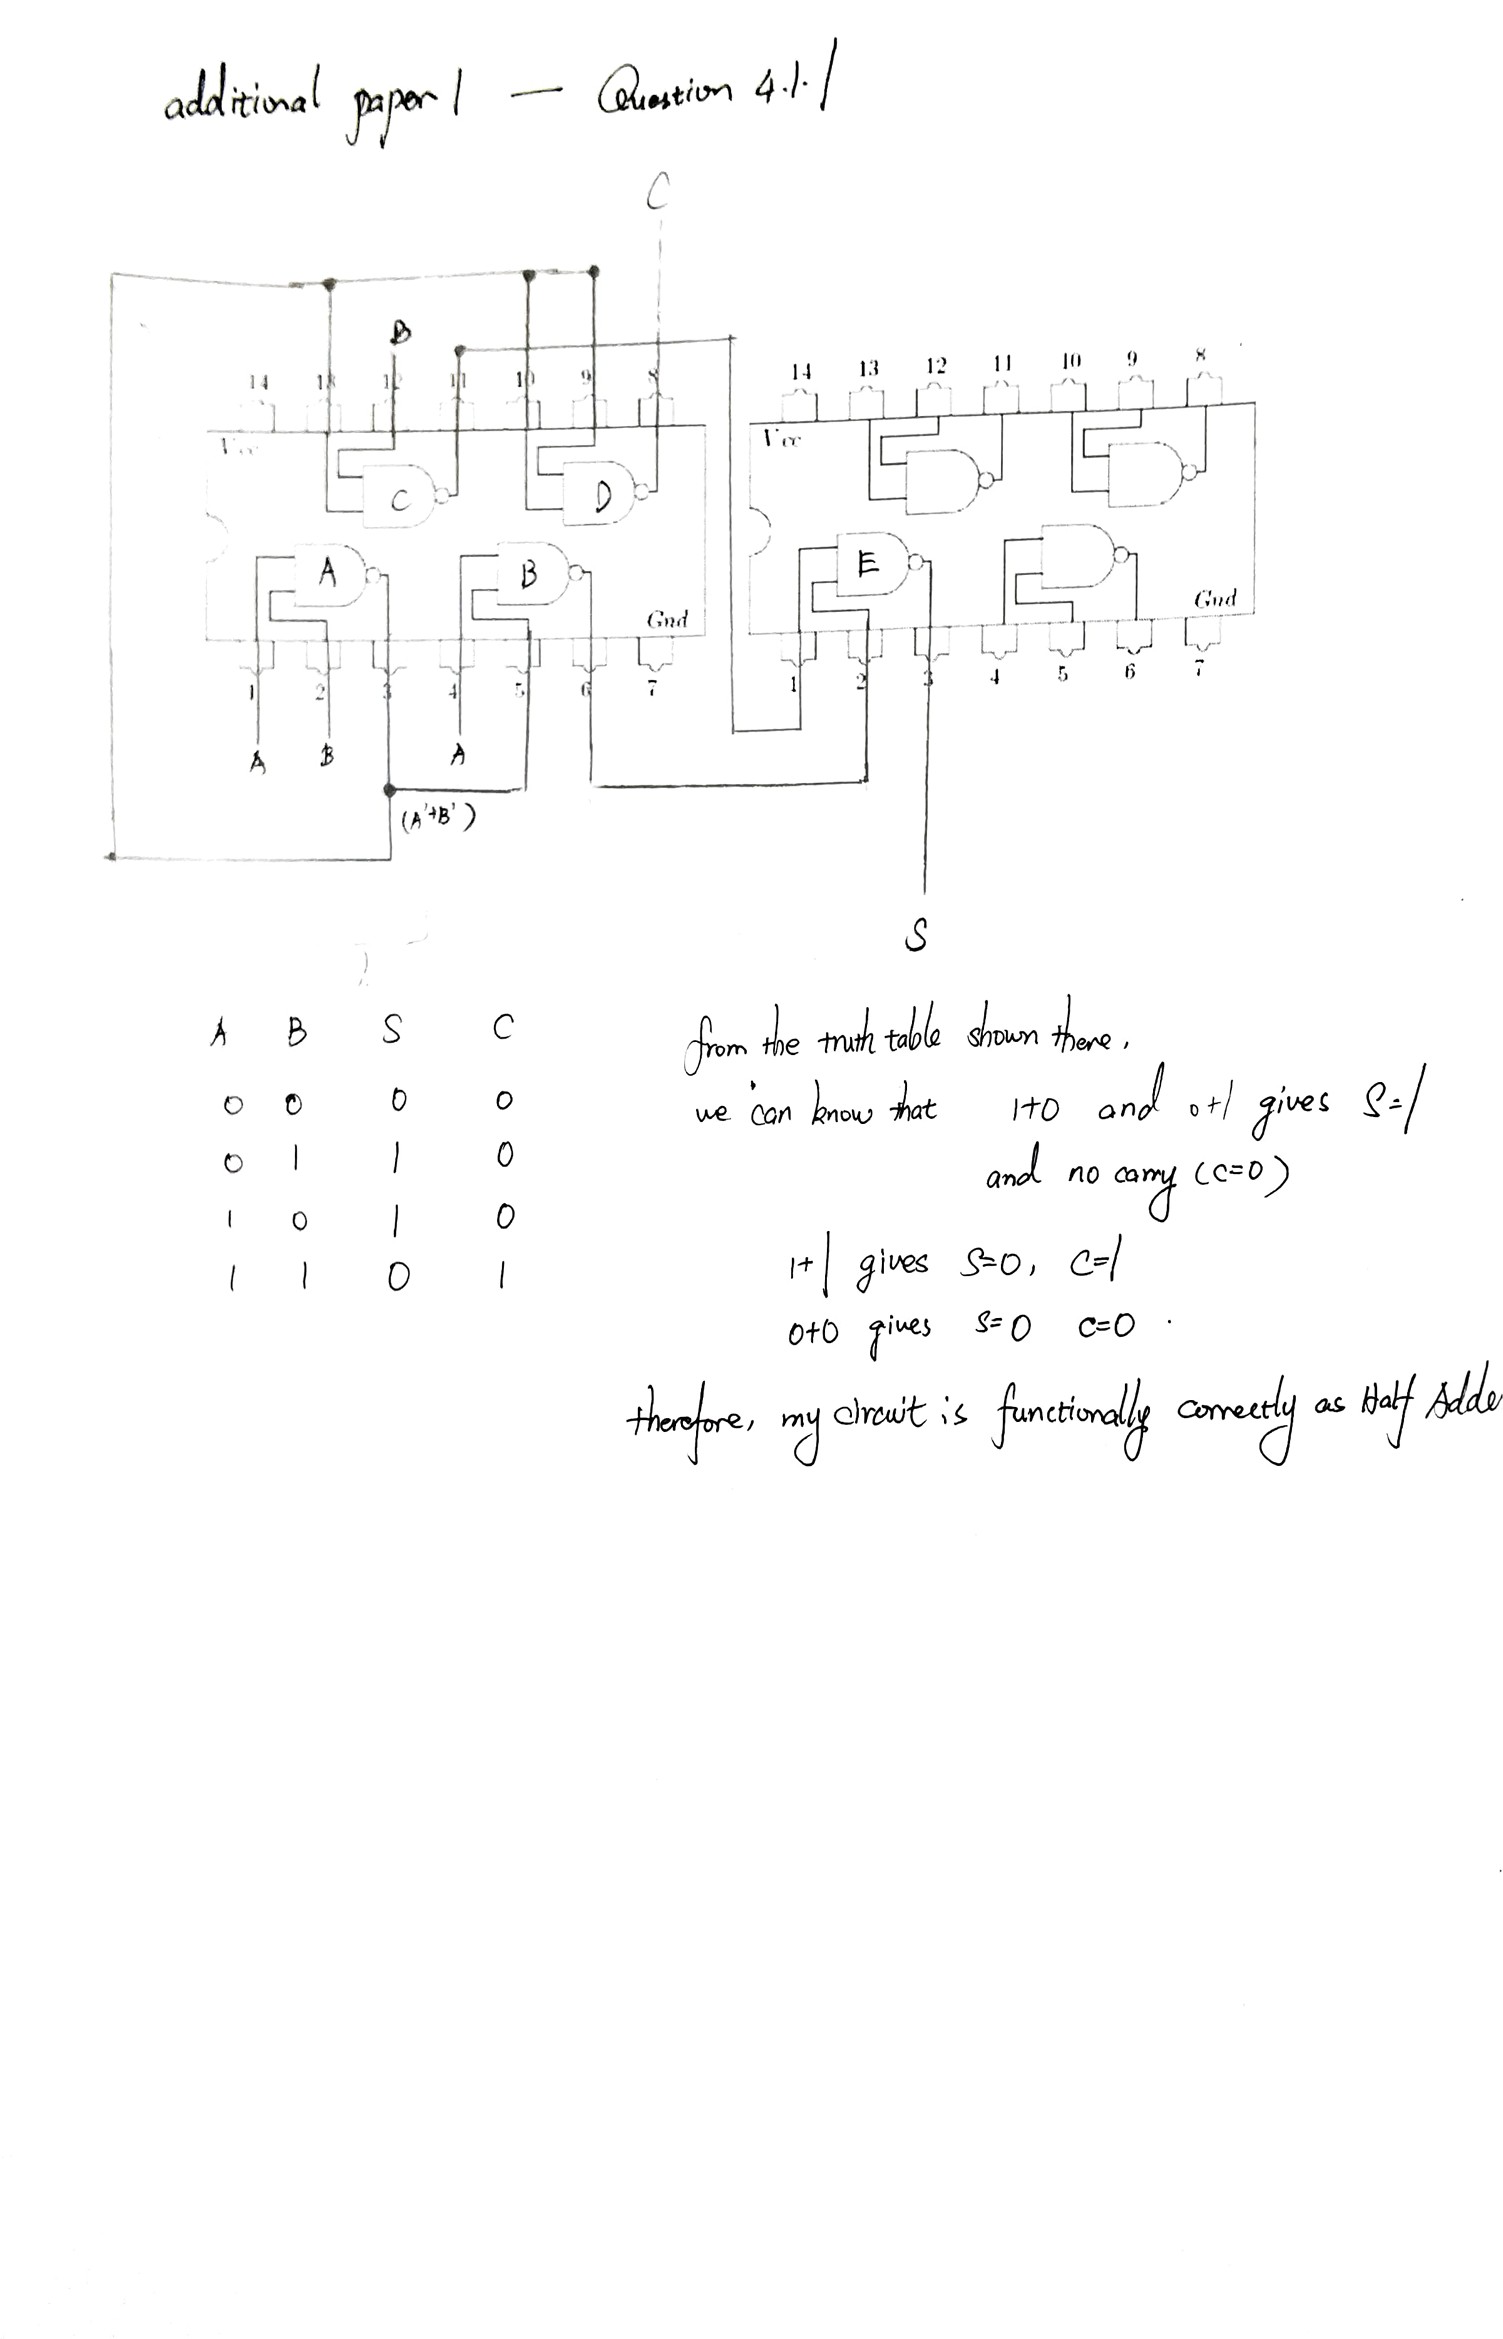 additional paper 1 — Question 4.1.1
C
B
14 13 12 11 10 9 8
14 13 12 11 10 9 8
Vcc
Vcc
C D
A B
E
Gnd
Gnd
1 2 3 4 5 6 7
1 2 3 4 5 6 7
A B A
(A'+B')
S
A B S C
0 0 0 0
0 1 1 0
1 0 1 0
1 1 0 1
from the truth table shown there,
we can know that 1+0 and 0+1 gives S=1
and no carry (C=0)
1+1 gives S=0, C=1
0+0 gives S=0 C=0.
therefore, my circuit is functionally correctly as Half Adde